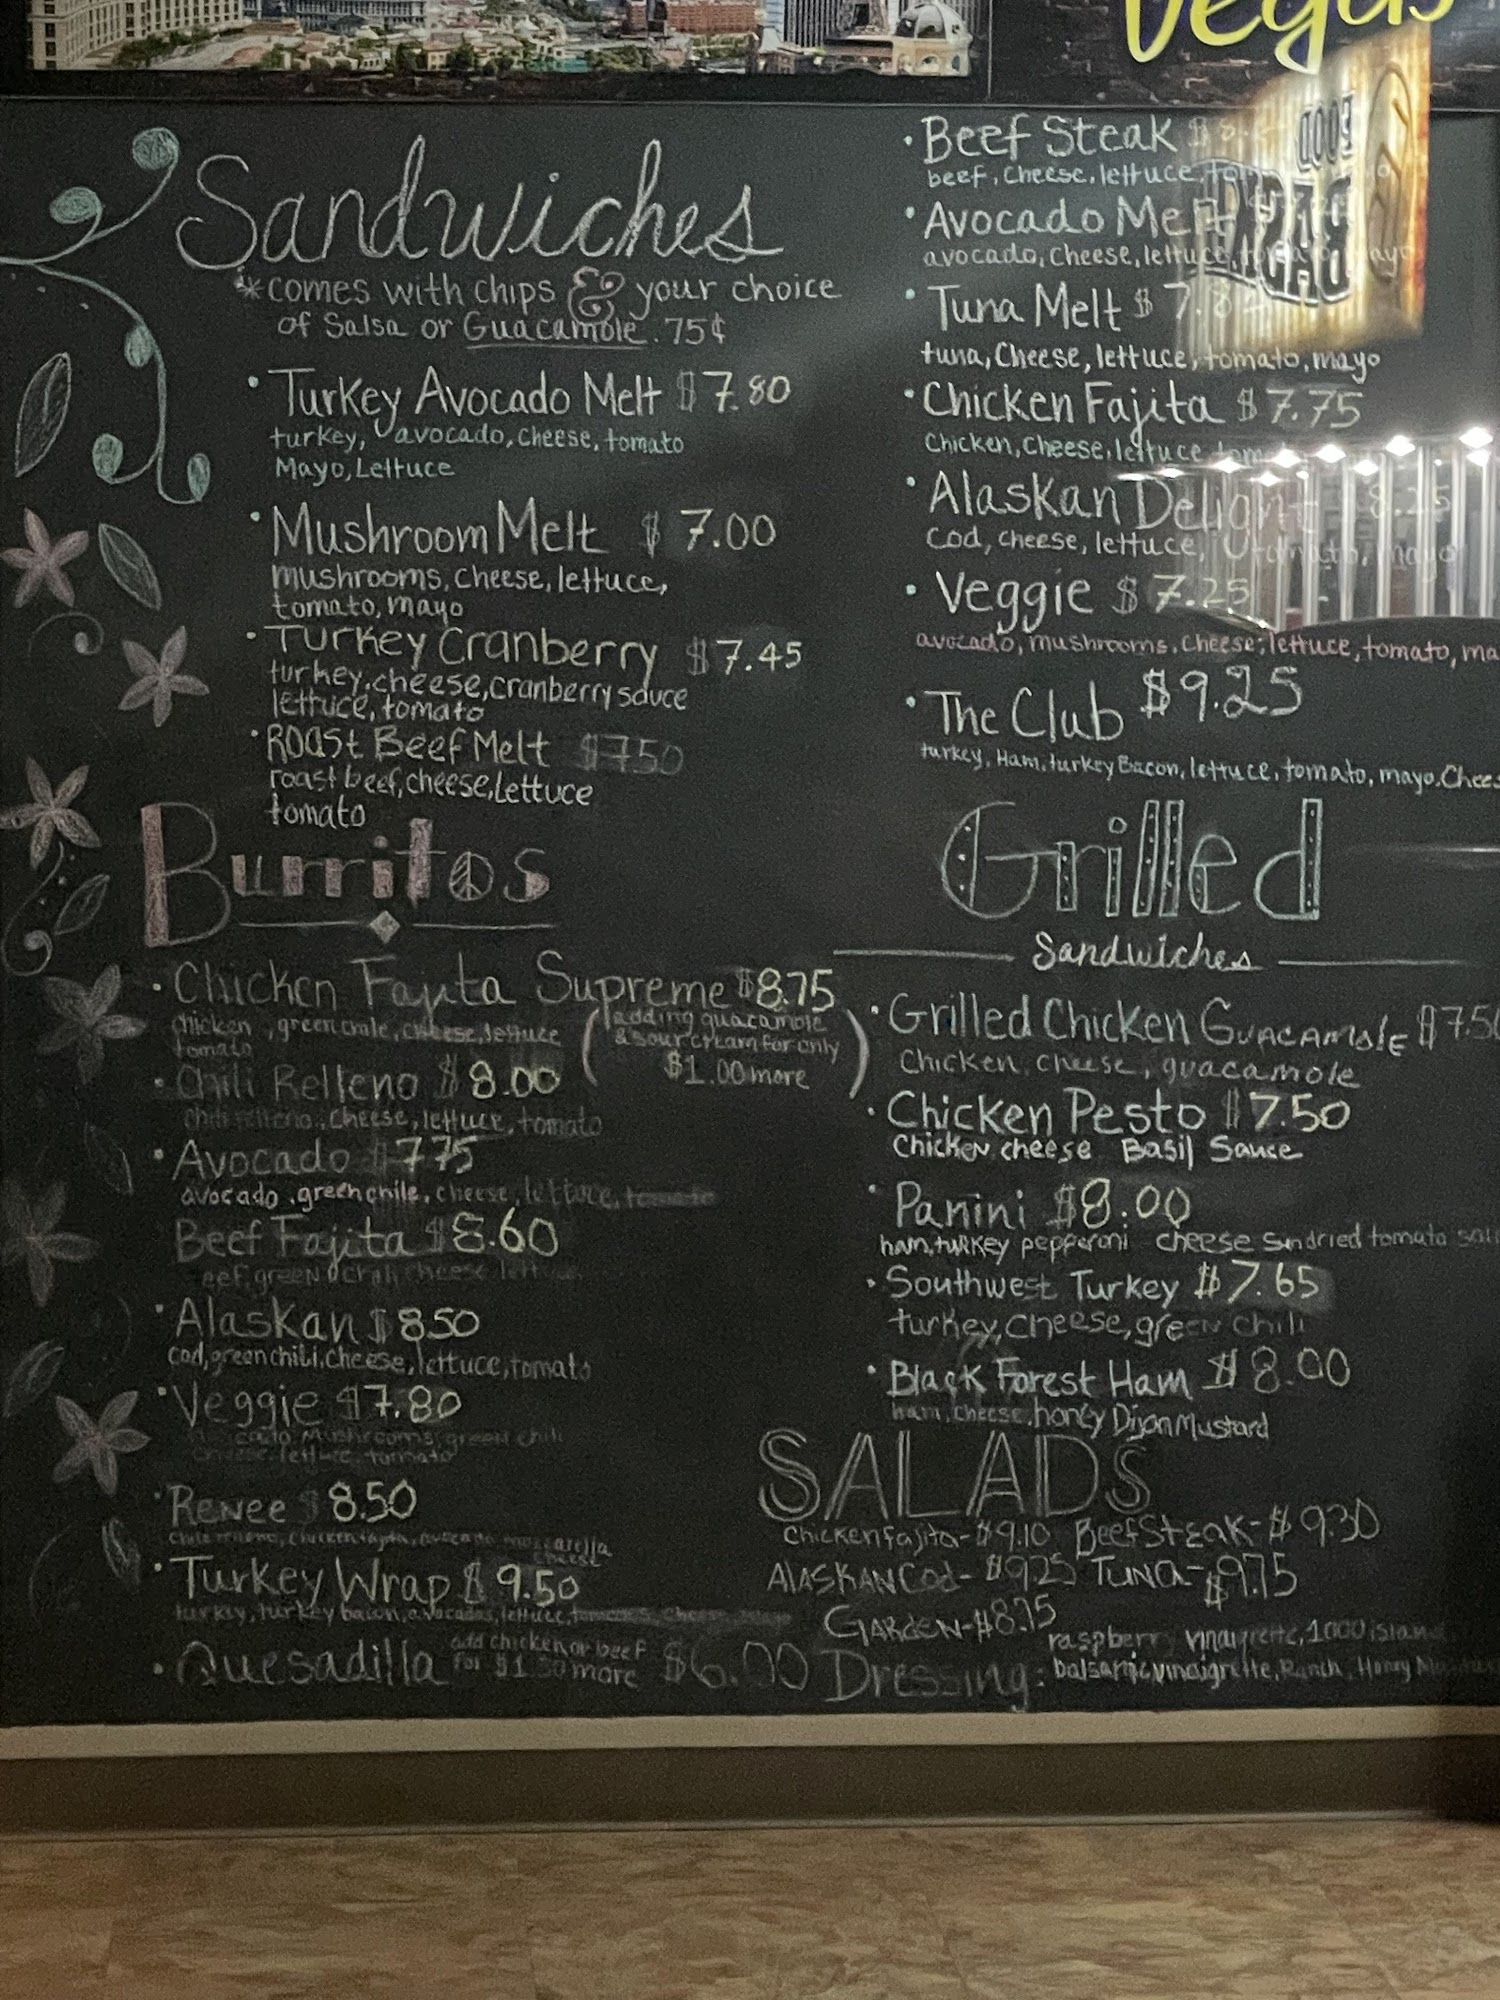 Vegas
Sandwiches
*comes with chips & your choice
of Salsa or Guacamole .75¢
• Turkey Avocado Melt $7.80
turkey, avocado, cheese, tomato
Mayo, Lettuce
• Mushroom Melt $ 7.00
mushrooms, cheese, lettuce,
tomato, mayo
• Turkey Cranberry $7.45
turkey, cheese, cranberry sauce
lettuce, tomato
• Roast Beef Melt $7.50
roast beef, cheese, lettuce
tomato
• Beef Steak
beef, cheese, lettuce,
• Avocado Melt
avocado, cheese, lettuce, tomato, mayo
• Tuna Melt $
tuna, Cheese, lettuce, tomato, mayo
• Chicken Fajita $7.75
Chicken, Cheese, lettuce
• Alaskan Delight 8.25
Cod, cheese, lettuce, tomato, mayo
• Veggie $7.25
avocado, mushrooms, cheese, lettuce, tomato, ma
• The Club $9.25
turkey, Ham, turkey Bacon, lettuce, tomato, mayo, Chees
FOOD
Burritos
• Chicken Fajita Supreme $8.75
chicken, green chile, cheese, lettuce
tomato
(adding guacamole
& sour cream for only
$1.00 more)
• Chili Relleno $8.00
chili relleno, cheese, lettuce, tomato
• Avocado $7.75
avocado, green chile, cheese, lettuce, tomato
Beef Fajita $8.60
• Alaskan $8.50
cod, green chili, cheese, lettuce, tomato
• Veggie $7.80
Mushrooms, green chili
cheese, lettuce, tomato
• Renee $8.50
chile relleno, chicken fajita, avocado mozzarella
cheese
• Turkey Wrap $9.50
turkey, turkey bacon, avocados, lettuce, tomatoes, cheese, mayo
• Quesadilla add chicken or beef
for $1.50 more $6.00
Grilled
Sandwiches
• Grilled Chicken Guacamole $7.50
Chicken, cheese, guacamole
• Chicken Pesto $7.50
Chicken cheese Basil Sauce
• Panini $8.00
ham, turkey pepperoni cheese sundried tomato
• Southwest Turkey $7.65
turkey, cheese, green chili
• Black Forest Ham $8.00
ham, cheese, honey Dijon Mustard
SALADS
Chicken fajita- $9.10 Beef Steak- $9.30
Alaskan Cod- $9.25 Tuna- $9.75
Garden- $8.75
Dressing: raspberry vinaigrette, 1000 island
balsamic vinaigrette, Ranch, Honey